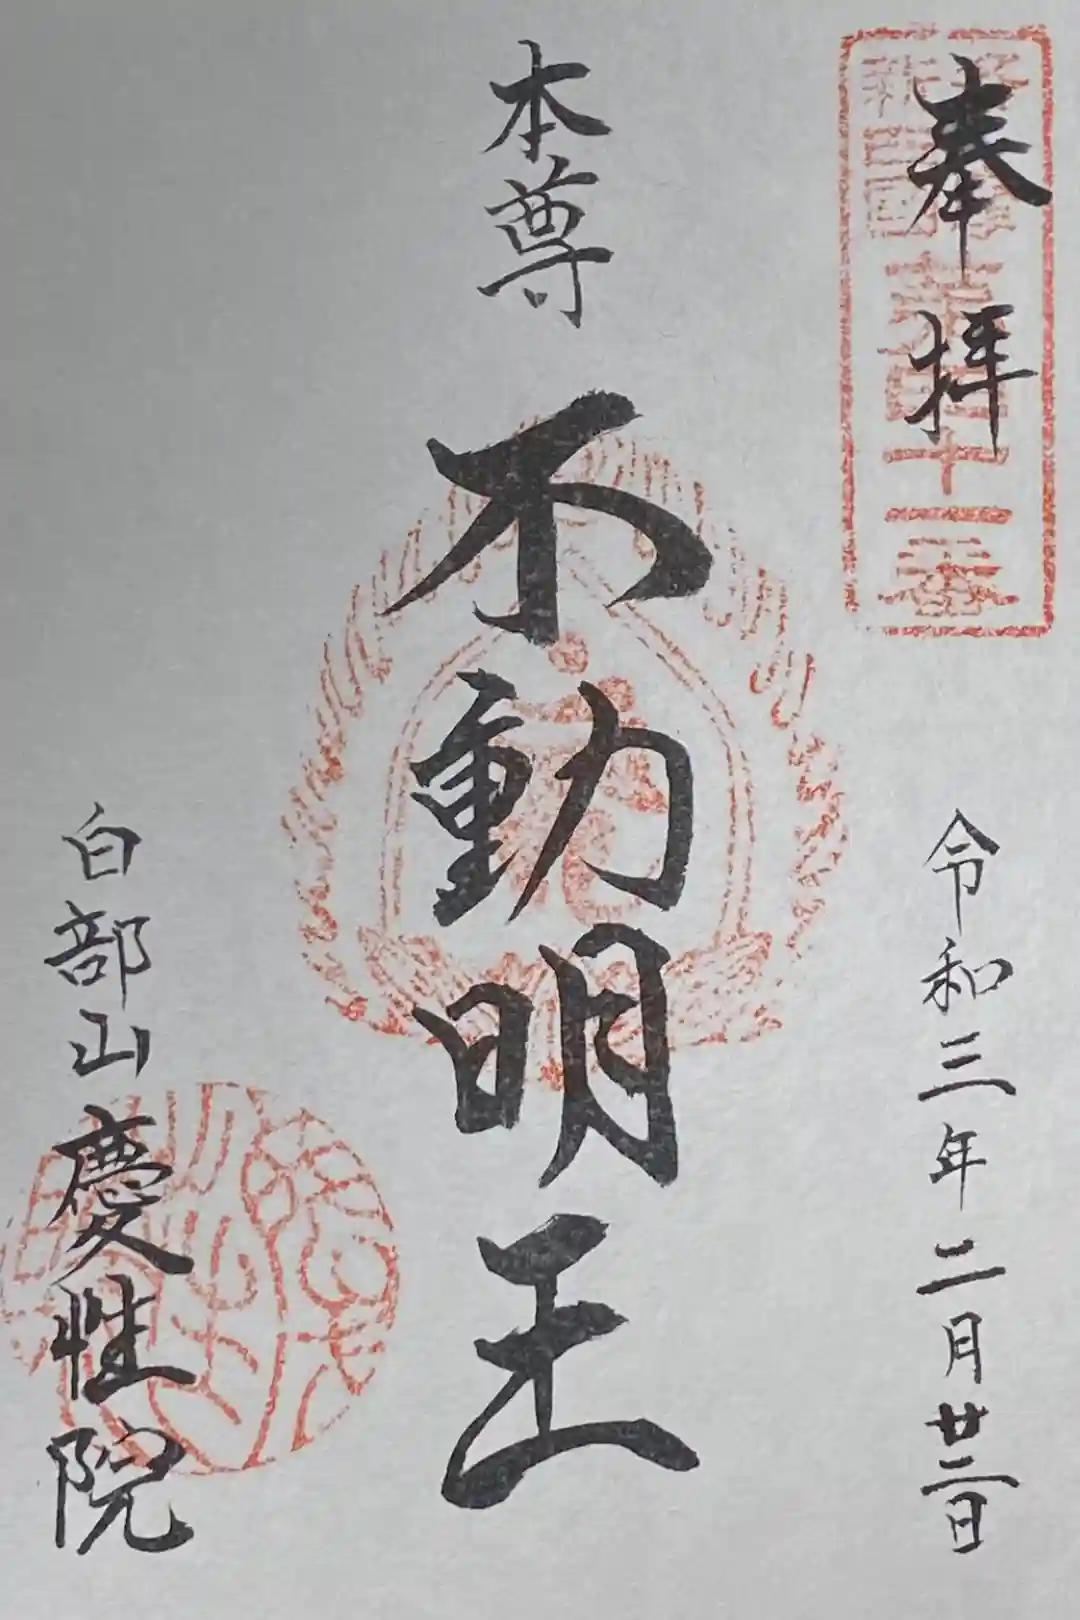 奉拝
令和三年二月廿二日
本尊
不動明王
白部山
慶性院